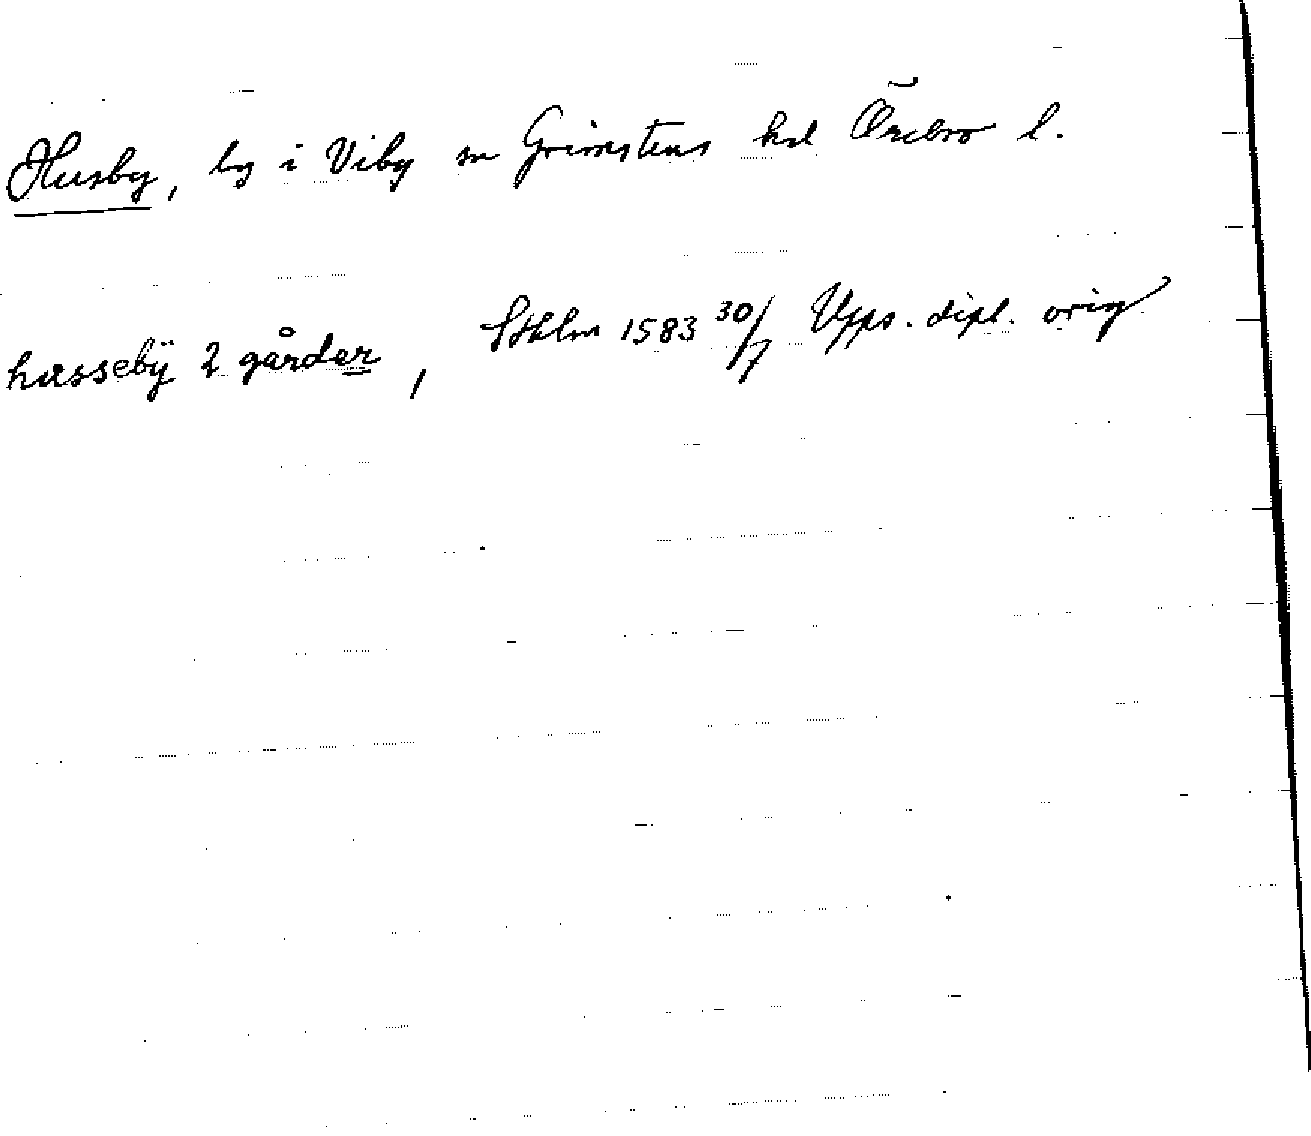 Husby, by i Viby sn Grimstens hd Örebro l.
husseby 2 gårder, Sthlm 1583 30/7 Upps. dipl. orig